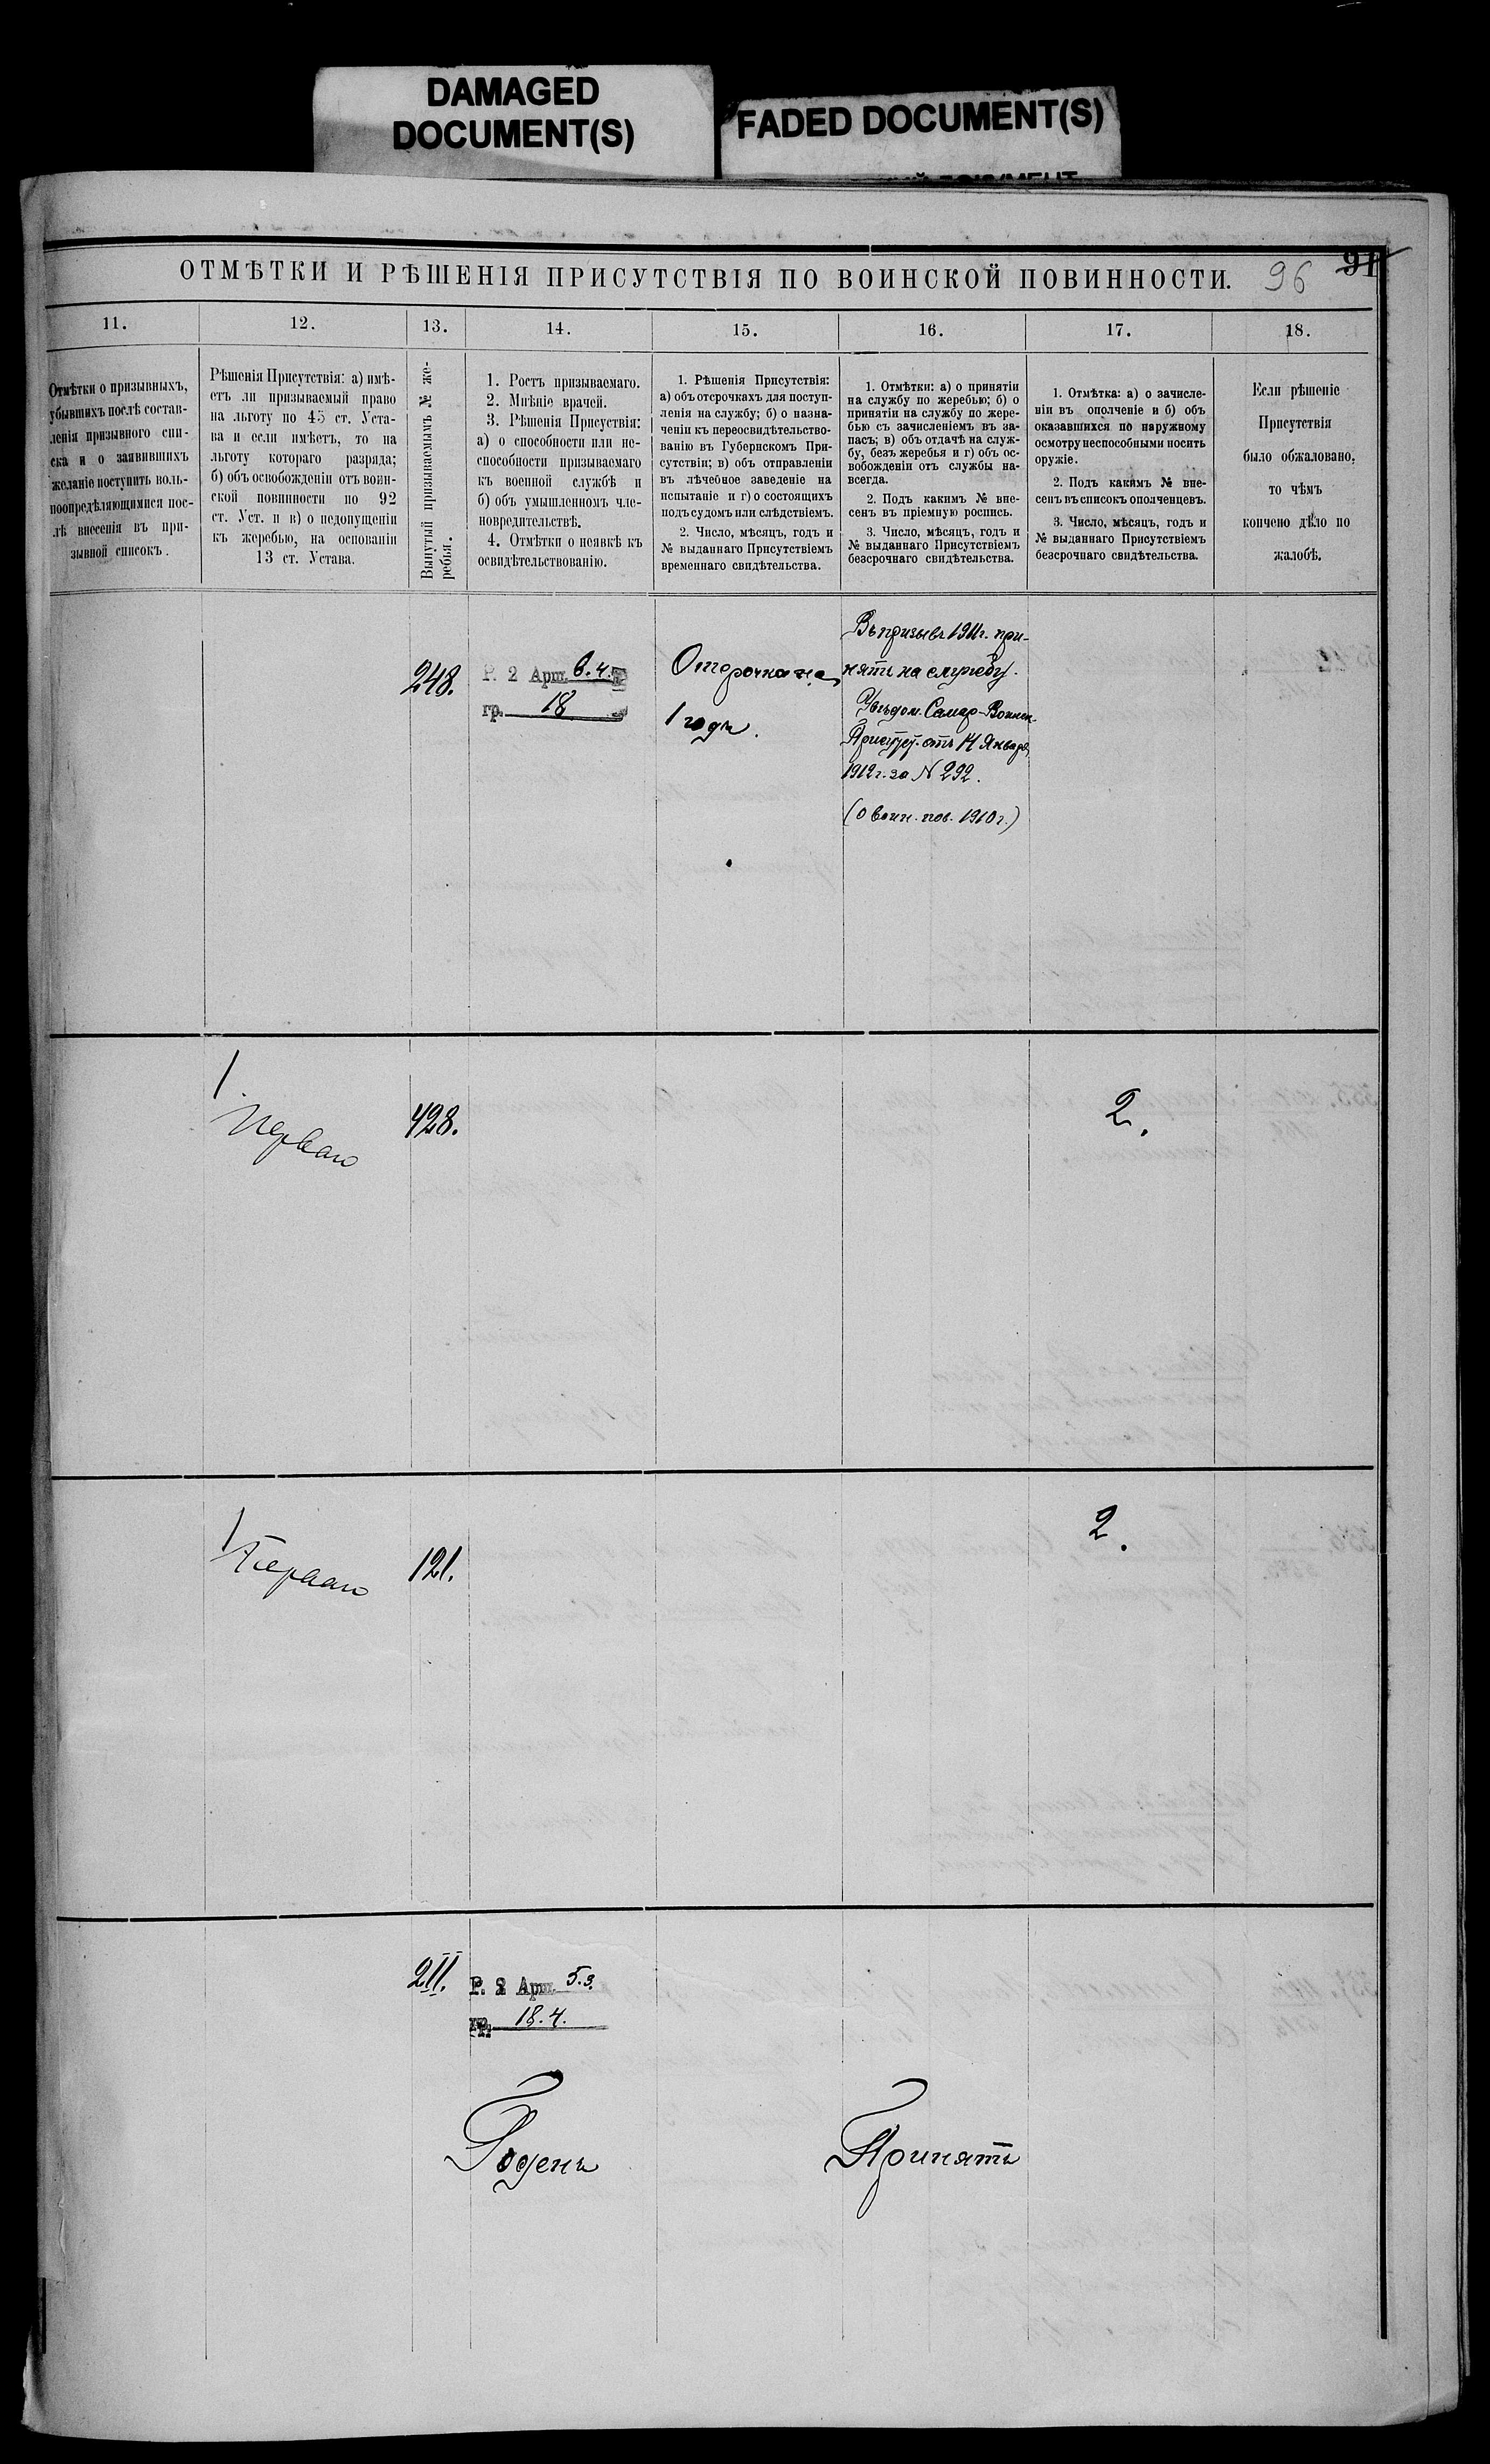 DAMAGED
DOCUMENT(S)
FADED DOCUMENT(S)
ОТМѢТКИ И РѢШЕНІЯ ПРИСУТСТВІЯ ПО ВОИНСКОЙ ПОВИННОСТИ.
96
91
11.
12.
13.
14.
15.
16.
17.
18.
Отмѣтки о призывныхъ,
убывшихъ послѣ состав-
ленія призывного спи-
ска и о заявившихъ
желаніе поступить воль-
ноопредѣляющимися пос-
лѣ внесенія въ при-
зывной списокъ.
Рѣшенія Присутствія: а) имѣ-
етъ ли призываемый право
на льготу по 45 ст. Уста-
ва и если имѣетъ, то на
льготу котораго разряда;
б) объ освобожденіи отъ воин-
ской повинности по 92
ст. Уст. и в) о недопущеніи
къ жеребью, на основаніи
13 ст. Устава.
Вынутый призываемымъ № же-
ребья.
1. Ростъ призываемаго.
2. Мнѣніе врачей.
3. Рѣшенія Присуствія:
а) о способности или не-
способности призываемаго
къ военной службѣ и
б) объ умышленномъ чле-
новредительствѣ.
4. Отмѣтки о неявкѣ къ
освидѣтельствованію.
1. Рѣшенія Присутствія:
а) объ отсрочкахъ для поступ-
ленія на службу; б) о назна-
ченіи къ переосвидѣтельство-
ванію въ Губернскомъ При-
сутствіи; в) объ отправленіи
въ лѣчебное заведеніе на
испытаніе и г) о состоящихъ
подъ судомъ или слѣдствіемъ.
2. Число, мѣсяцъ, годъ и
№ выданнаго Присутствіемъ
временнаго свидѣтельства.
1. Отмѣтки: а) о принятіи
на службу по жеребью; б) о
принятіи на службу по жере-
бью съ зачисленіемъ въ за-
пасъ; в) объ отдачѣ на служ-
бу, безъ жеребья и г) объ ос-
вобожденіи отъ службы на-
всегда.
2. Подъ какимъ № вне-
сенъ въ пріемную роспись.
3. Число, мѣсяцъ, годъ и
№ выданнаго Присутствіемъ
безсрочнаго свидѣтельства.
1. Отмѣтка: а) о зачисле-
ніи въ ополченіе и б) объ
оказавшихся по наружному
осмотру неспособными носить
оружіе.
2. Подъ какимъ № вне-
сенъ въ списокъ ополченцевъ.
3. Число, мѣсяцъ, годъ и
№ выданнаго Присутствіемъ
безсрочнаго свидѣтельства.
Если рѣшеніе
Присутствія
было обжаловано,
то чѣмъ
кончено дѣло по
жалобѣ.
248.
Р. 2 Арш. 6.4.
гр. 18
Отсрочка на
1 годъ.
Въ призывъ 1911г. при-
нятъ на службу.
Увѣдом. Самар. Воинск.
Присут. отъ 14 Января
1912 г. за № 292.
(о воин. пов. 1910 г.)
1
Перваго
428.
2.
1
Перваго
121.
2.
211.
Р. 2 Арш. 5.3.
гр. 18.4.
Годенъ
Принятъ